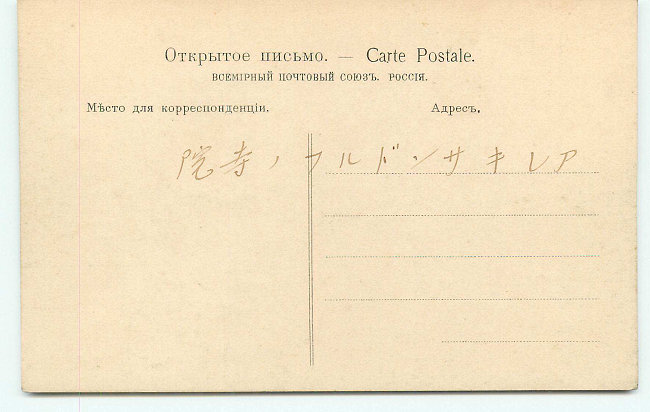 Открытое письмо. — Carte Postale.
ВСЕМІРНЫЙ ПОЧТОВЫЙ СОЮЗЪ. РОССІЯ.
Мѣсто для корреспонденціи.
Адресъ.
アレキサンドルフノ寺院